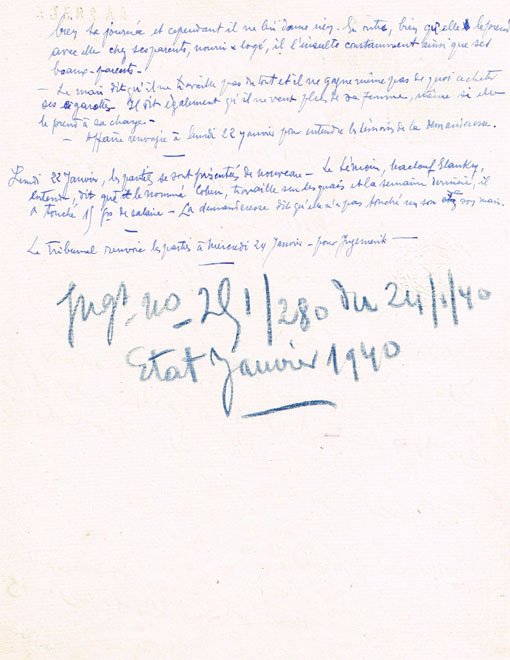 bien sa journée et cependant il ne lui donne rien. En outre, bien qu'elle le prend
avec elle chez ses parents, nourri & logé, il l'insulte constamment ainsi que ses
beaux-parents.
- Le mari dit qu'il ne travaille pas du tout et il ne gagne même pas de quoi acheter
ses cigarettes. Il dit également qu'il ne veut plus de sa femme, même si elle
le prend à sa charge -
- Affaire renvoyée à lundi 22 Janvier pour entendre les témoins de la demanderesse.
Lundi 22 Janvier, les parties se sont présentées de nouveau - Le témoin,
entendu, dit que le nommé Cohen, travaille sur les quais et la semaine dernière, il
a touché 15 frs de salaire - La demanderesse dit qu'elle n'a pas touché un sou de son mari.
Le Tribunal renvoie les parties à Mercredi 24 Janvier - pour Jugement -
Jugt. no 251/280 du 24/1/40
Etat Janvier 1940